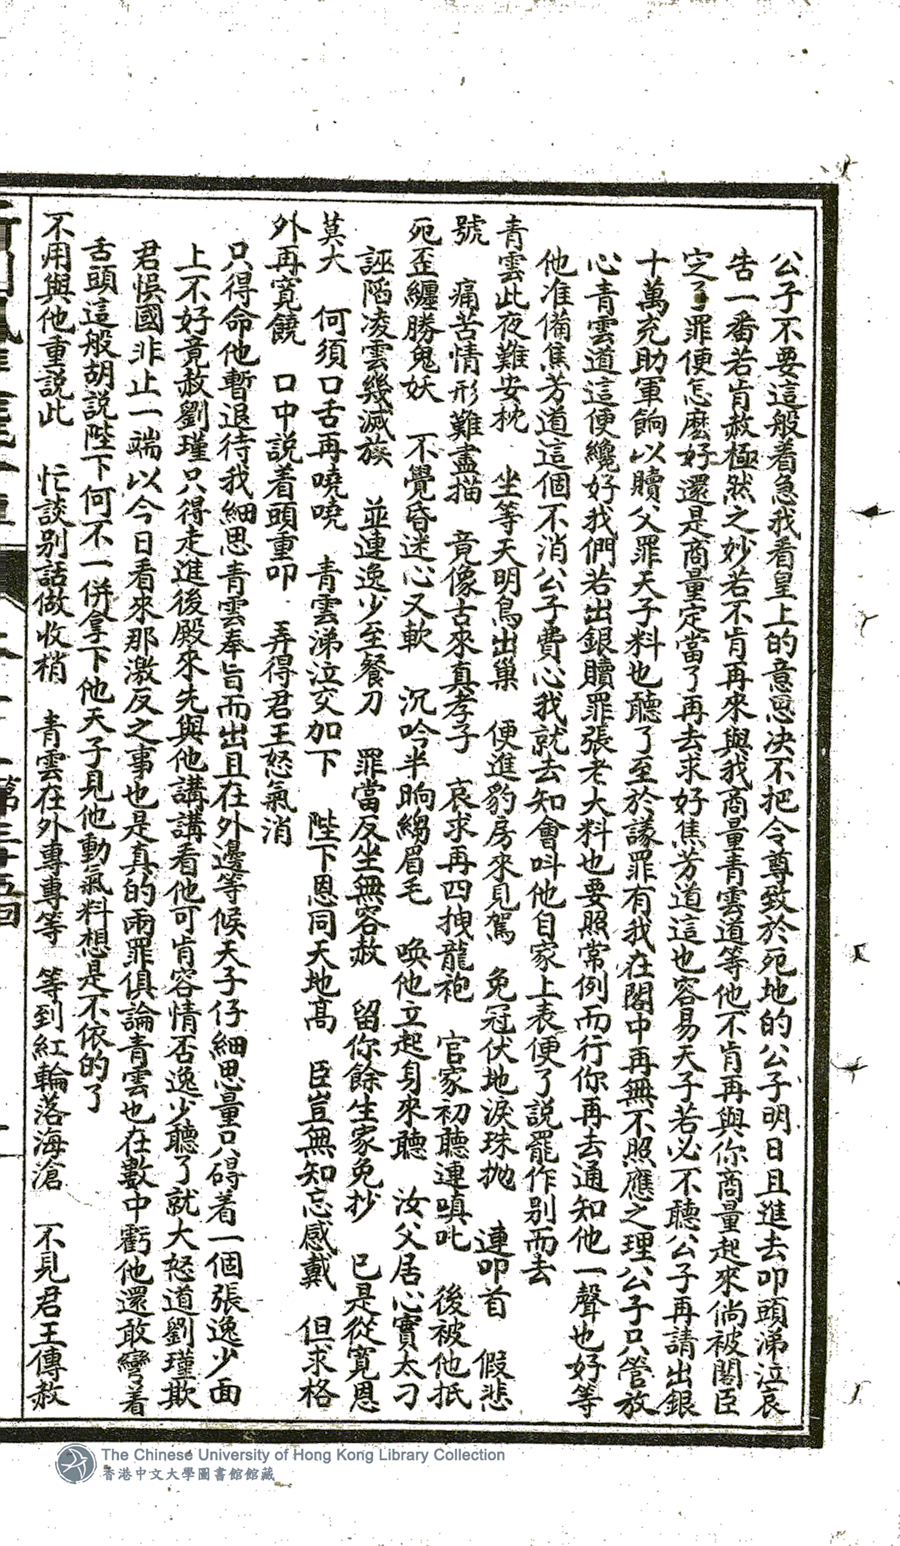 公子不要這般着急我看皇上的意思决不把令尊致於死地的公子明日且進去叩頭涕泣哀
告一番若肯赦極然之妙若不肯再來與我商量青雲道等他不肯再與你商量起來倘被閣臣
定了罪便怎麽好還是商量定當了再去求好焦芳道這也容易天子若必不聽公子再請出銀
十萬充助軍餉以贖父罪天子料也聽了至於議罪有我在閣中再無不照應之理公子只管放
心青雲道這便纔好我們若出銀贖罪張老大料也要照常例而行你再去通知他一聲也好等
他准備焦芳道這個不消公子費心我就去知會呌他自家上表便了說罷作别而去
青雲此夜難安枕　坐等天明鳥出巢　便進豹房來見駕　免冠伏地淚珠抛　連叩首　假悲
號　痛苦情形難盡描　竟像古來真孝子　哀求再四拽龍袍　官家初聽連嗔叱　後被他抵
死歪纏勝鬼妖　不覺昏迷心又軟　沉吟半晌縐眉毛　喚他立起身來聽　汝父居心實太刁
誣陷凌雲幾滅族　並連逸少至餐刀　罪當反坐無容赦　留你餘生家免抄　已是從寛恩
莫大　何須口舌再嘵嘵　青雲涕泣交加下　陛下恩同天地高　臣豈無知忘感戴　但求格
外再寛饒　口中說着頭重叩　弄得君王怒氣消
只得命他暫退待我細思青雲奉旨而出且在外邊等候天子仔細思量只碍着一個張逸少面
上不好竟赦劉瑾只得走進後殿來先與他講講看他可肯容情否逸少聽了就大怒道劉瑾欺
君悞國非止一端以今日看來那激反之事也是真的兩罪俱論青雲也在數中虧他還敢彎着
舌頭這般胡說陛下何不一併拿下他天子見他動氣料想是不依的了
不用與他重説此　忙談别話做收梢　青雲在外專專等　等到紅輪落海滄　不見君王傳赦
第三十五回
The Chinese University of Hong Kong Library Collection
香港中文大學圖書館館藏